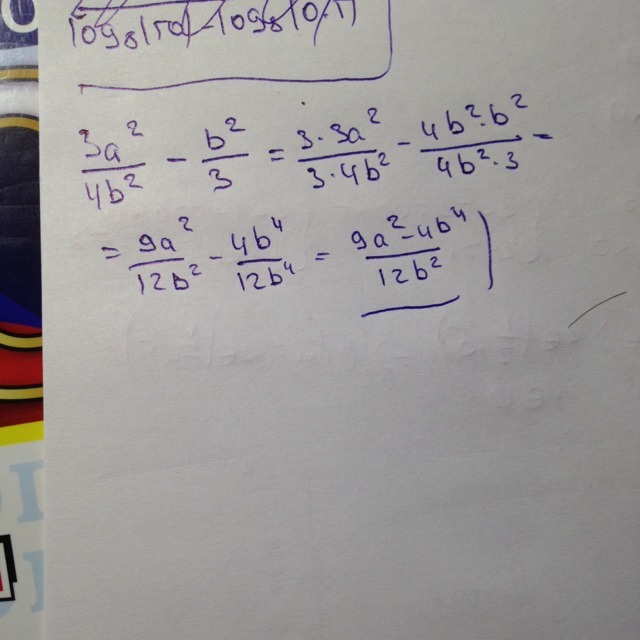 3a²/4b² - b²/3 = 3·3a²/3·4b² - 4b²·b²/4b²·3 =
= 9a²/12b² - 4b⁴/12b⁴ = 9a²-4b⁴/12b²